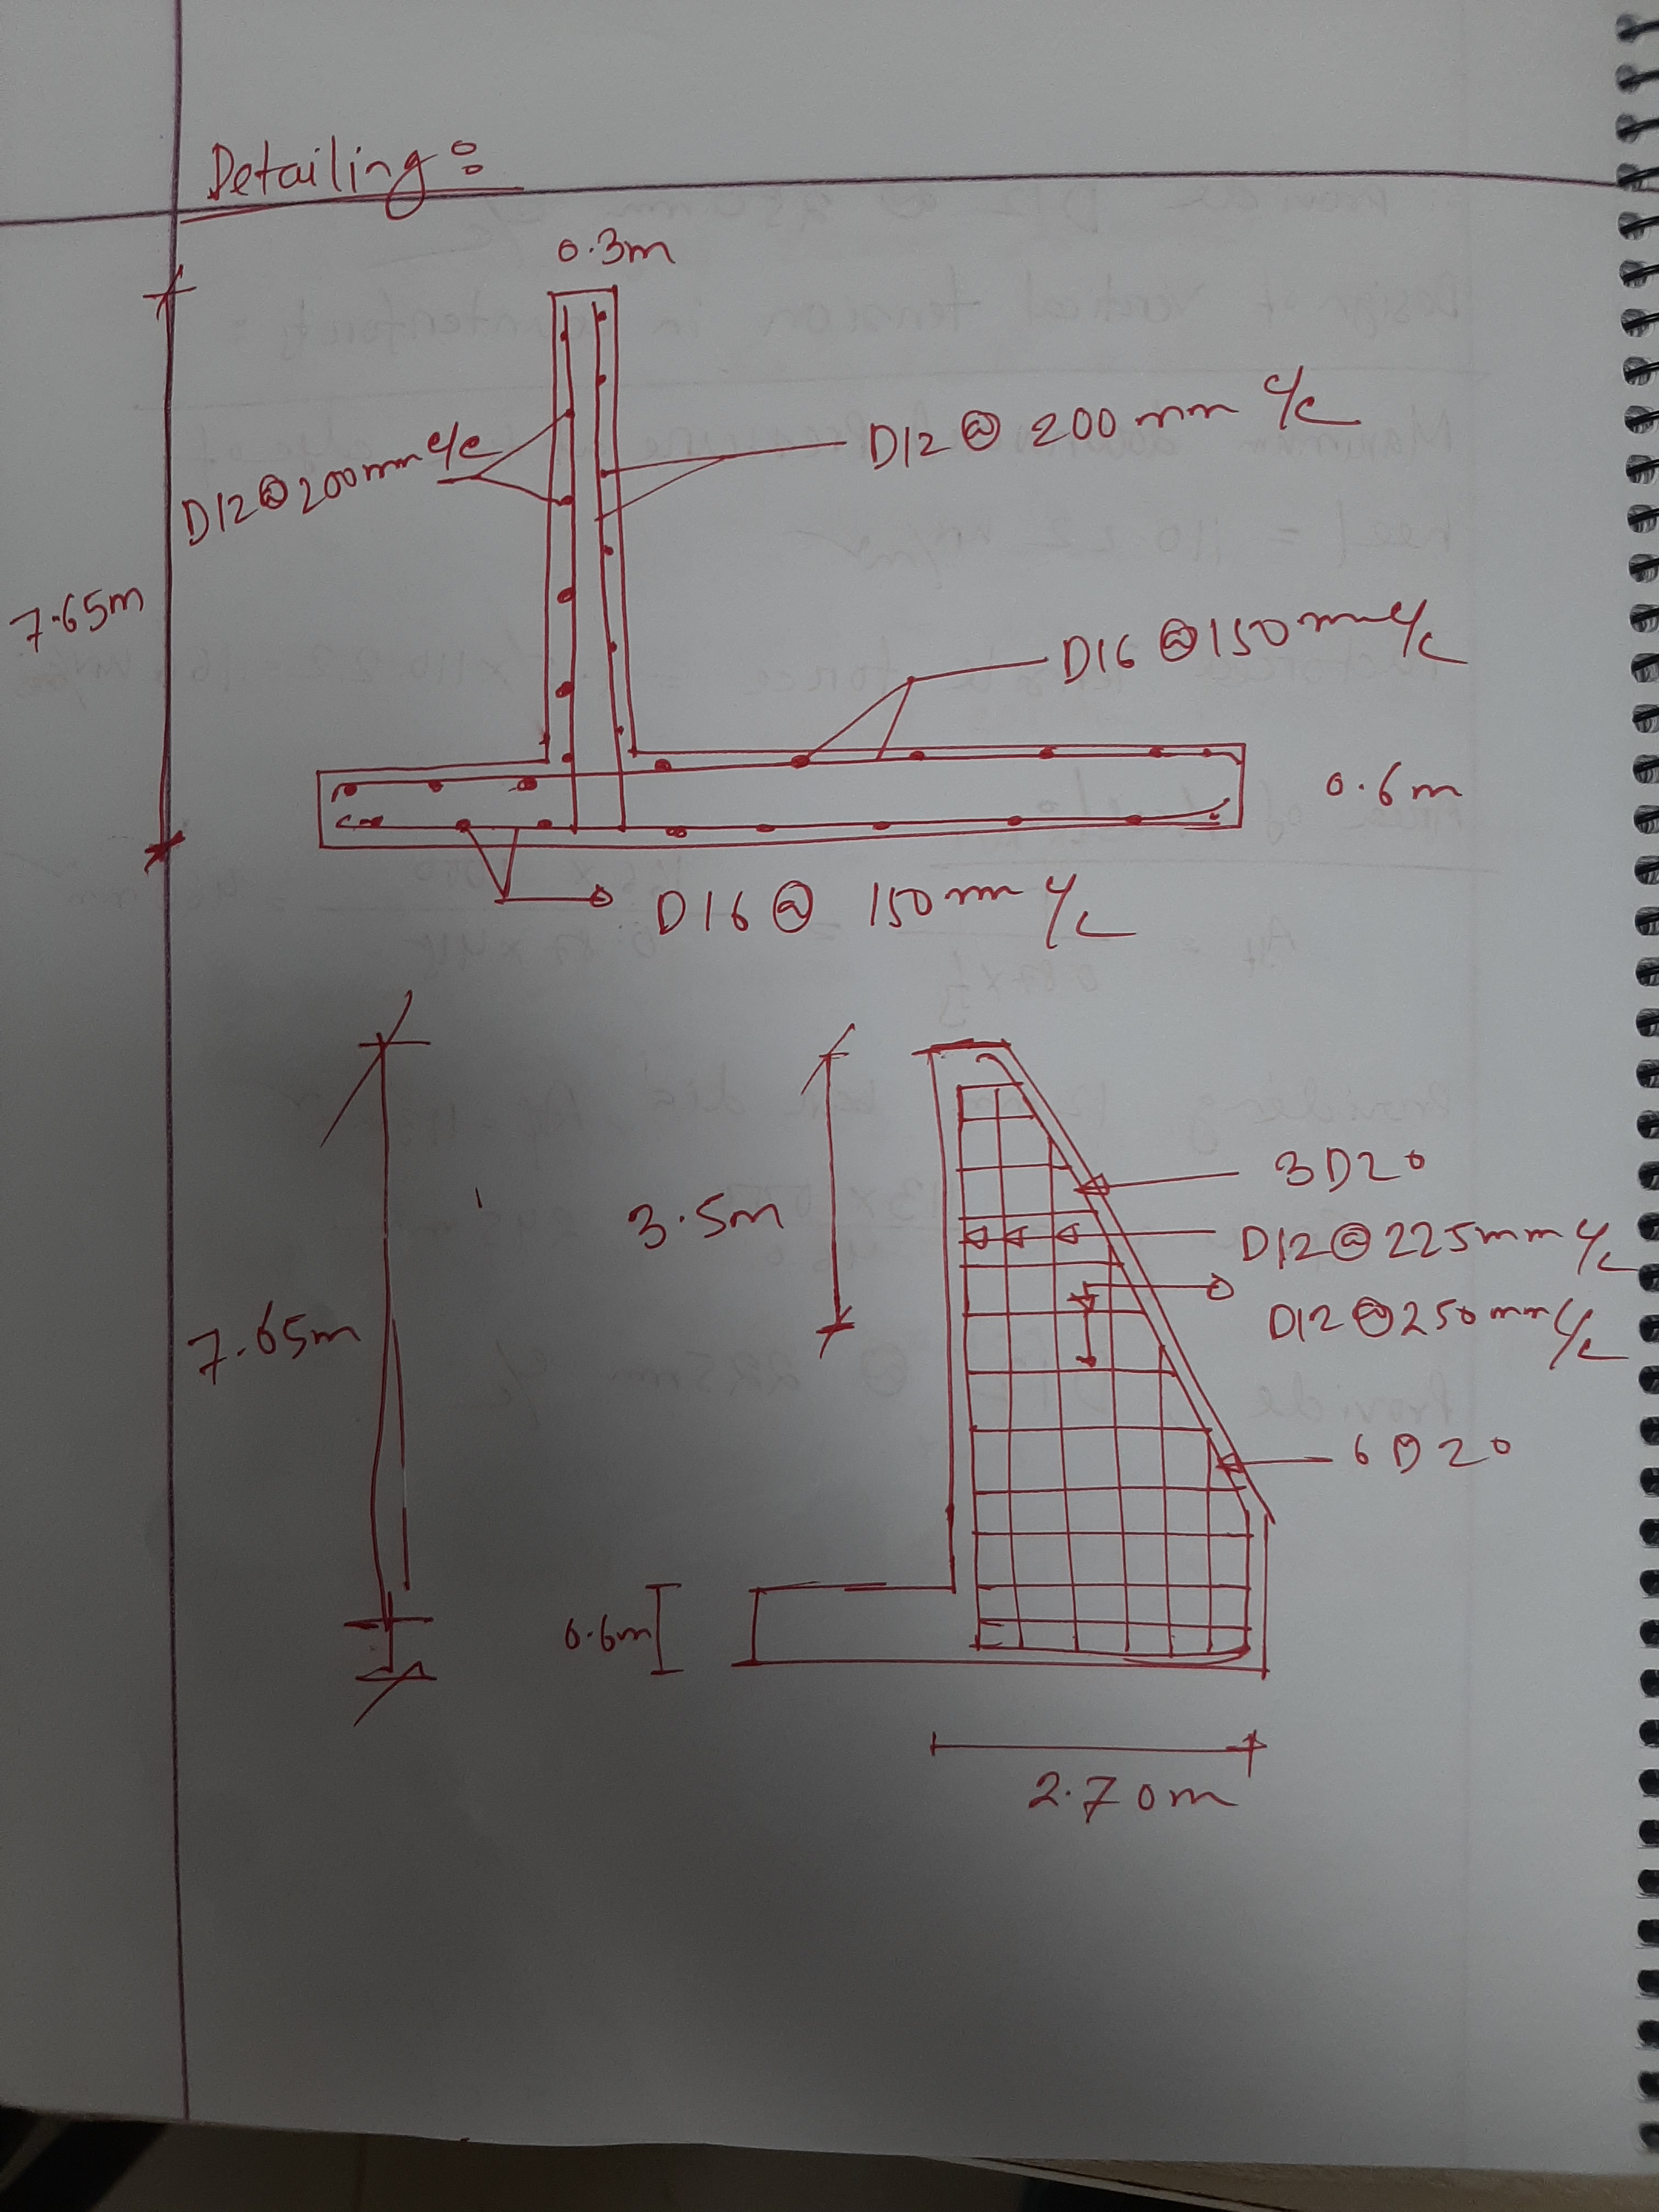 Detailing:
0.3m
D12 @ 200 mm c/c
D12 @ 200 mm c/c
7.65m
D16 @ 150 mm c/c
0.6m
D16 @ 150 mm c/c
3D20
3.5m
D12 @ 225 mm c/c
D12 @ 250 mm c/c
7.65m
6D20
0.6m
2.70m